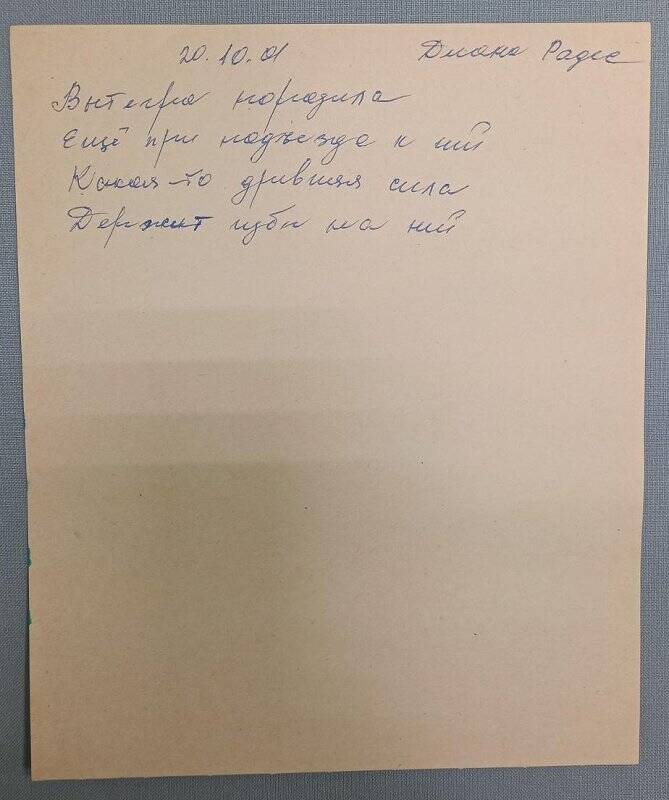 20.10.01 Диана Радес
Вытегра поразила
Ещё при подъезде к ней
Какая-то древняя сила
Держит избы на ней